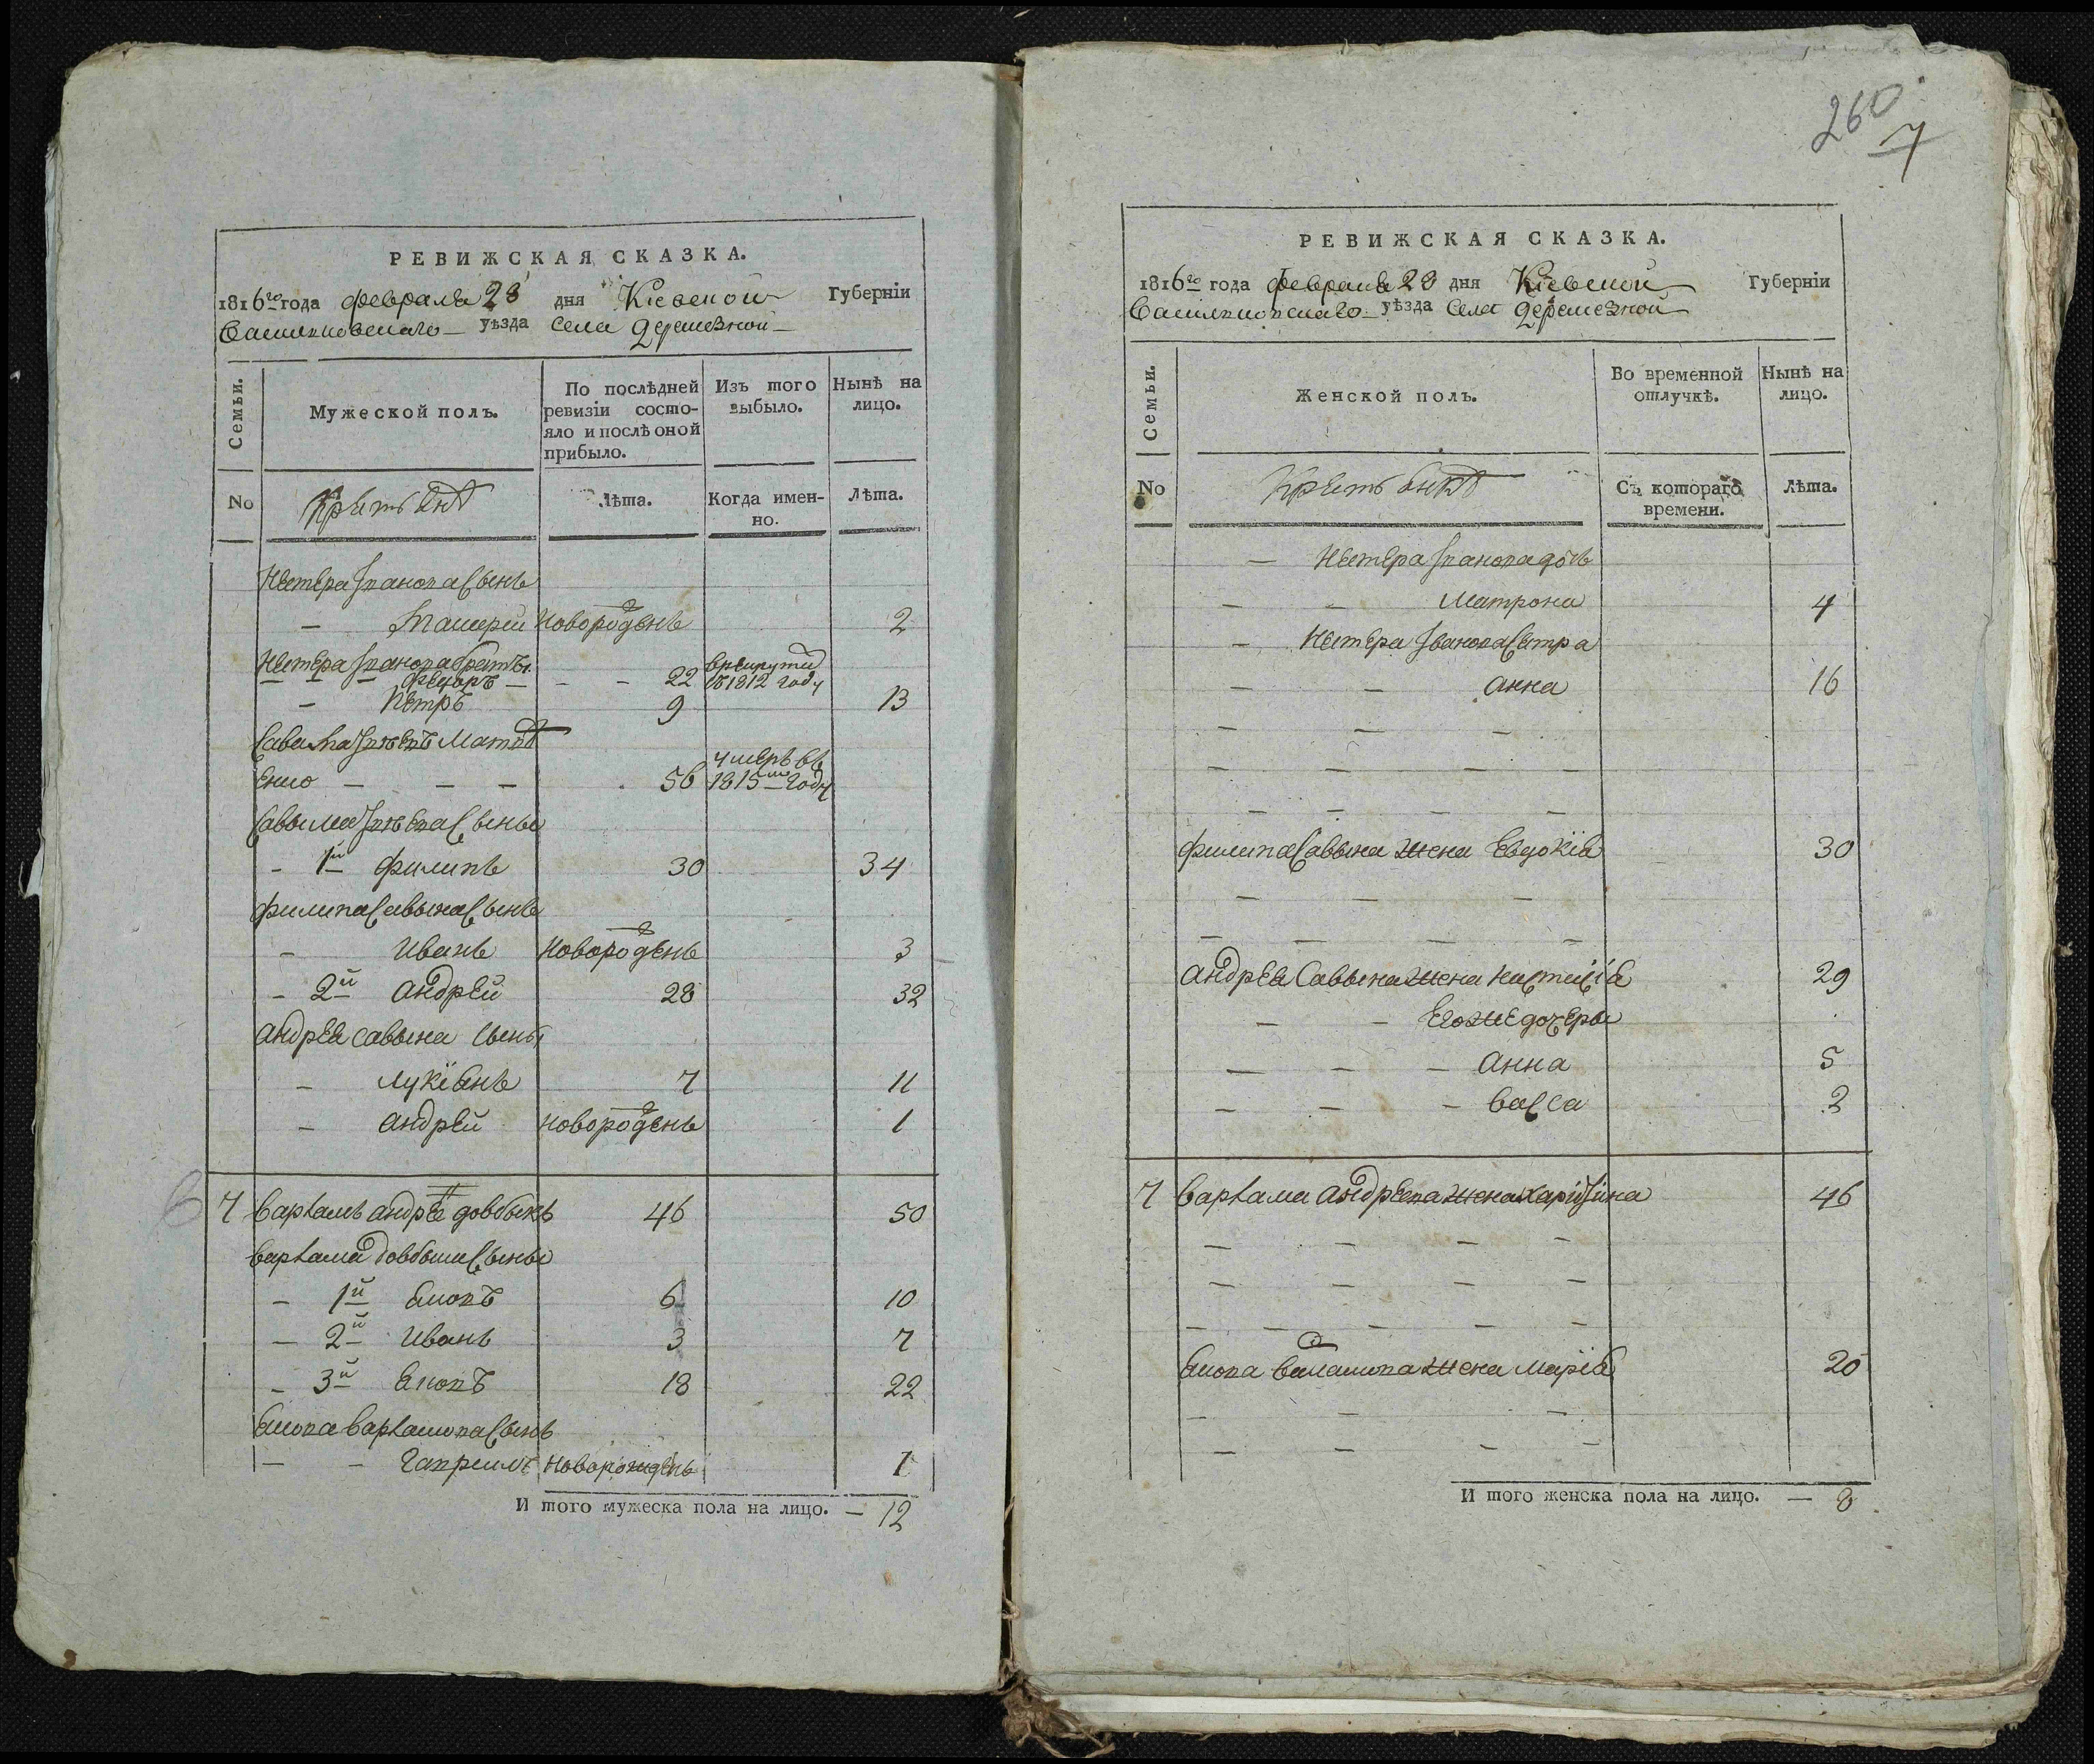 РЕВИЖСКАЯ СКАЗКА.
1816го года февраля 28 дня Кіевской Губерніи
Васильковскаго уѣзда села Деремезной
Семьи.
Мужеской полъ.
По послѣдней ревизіи состо-
яло и послѣ оной
прибыло.
Изъ того
выбыло.
Нынѣ на
лицо.
No
Крестьянъ
Лѣта.
Когда имен-
но.
Лѣта.
Нестера Іванова Сынъ
новороденъ 2
Нестера Іванова братья
Федоръ 22 в рекруты в 1812 году
Петръ 9 13
56 умеръ въ 1815м году
Саввы Сыны
1й Филипъ 30 34
Филипа Саввина Сынъ
Иванъ новороденъ 3
2й Андрей 28 32
Андрея Саввина Сыны
Лукіянъ 7 11
Андрей новороденъ 1
6
7 Варламъ Андрее довбышъ 46 50
Варлама Довбыша Сыны
1й Яковъ 6 10
2й Иванъ 3 7
3й Яковъ 18 22
Якова Варламова Сынъ
Гаврилъ новорожденъ 1
И того мужеска пола на лицо. — 12
260
7
РЕВИЖСКАЯ СКАЗКА.
1816го года февраля 28 дня Кіевской Губерніи
Васильковскаго уѣзда села Деремезной
Семьи.
Женской полъ.
Во временной
отлучкѣ.
Нынѣ на
лицо.
No
Крестьянъ
Съ котораго
времени.
Лѣта.
Нестера Іванова дочь
Матрона 4
Нестера Іванова Сестра
Анна 16
Филипа Саввина жена Евдокія 30
Андрея Саввина жена Настасія 29
Его же дочеры
Анна 5
Васса 2
7 Варлама Андреева жена Харитина 46
Якова жена Марія 20
И того женска пола на лицо. — 8